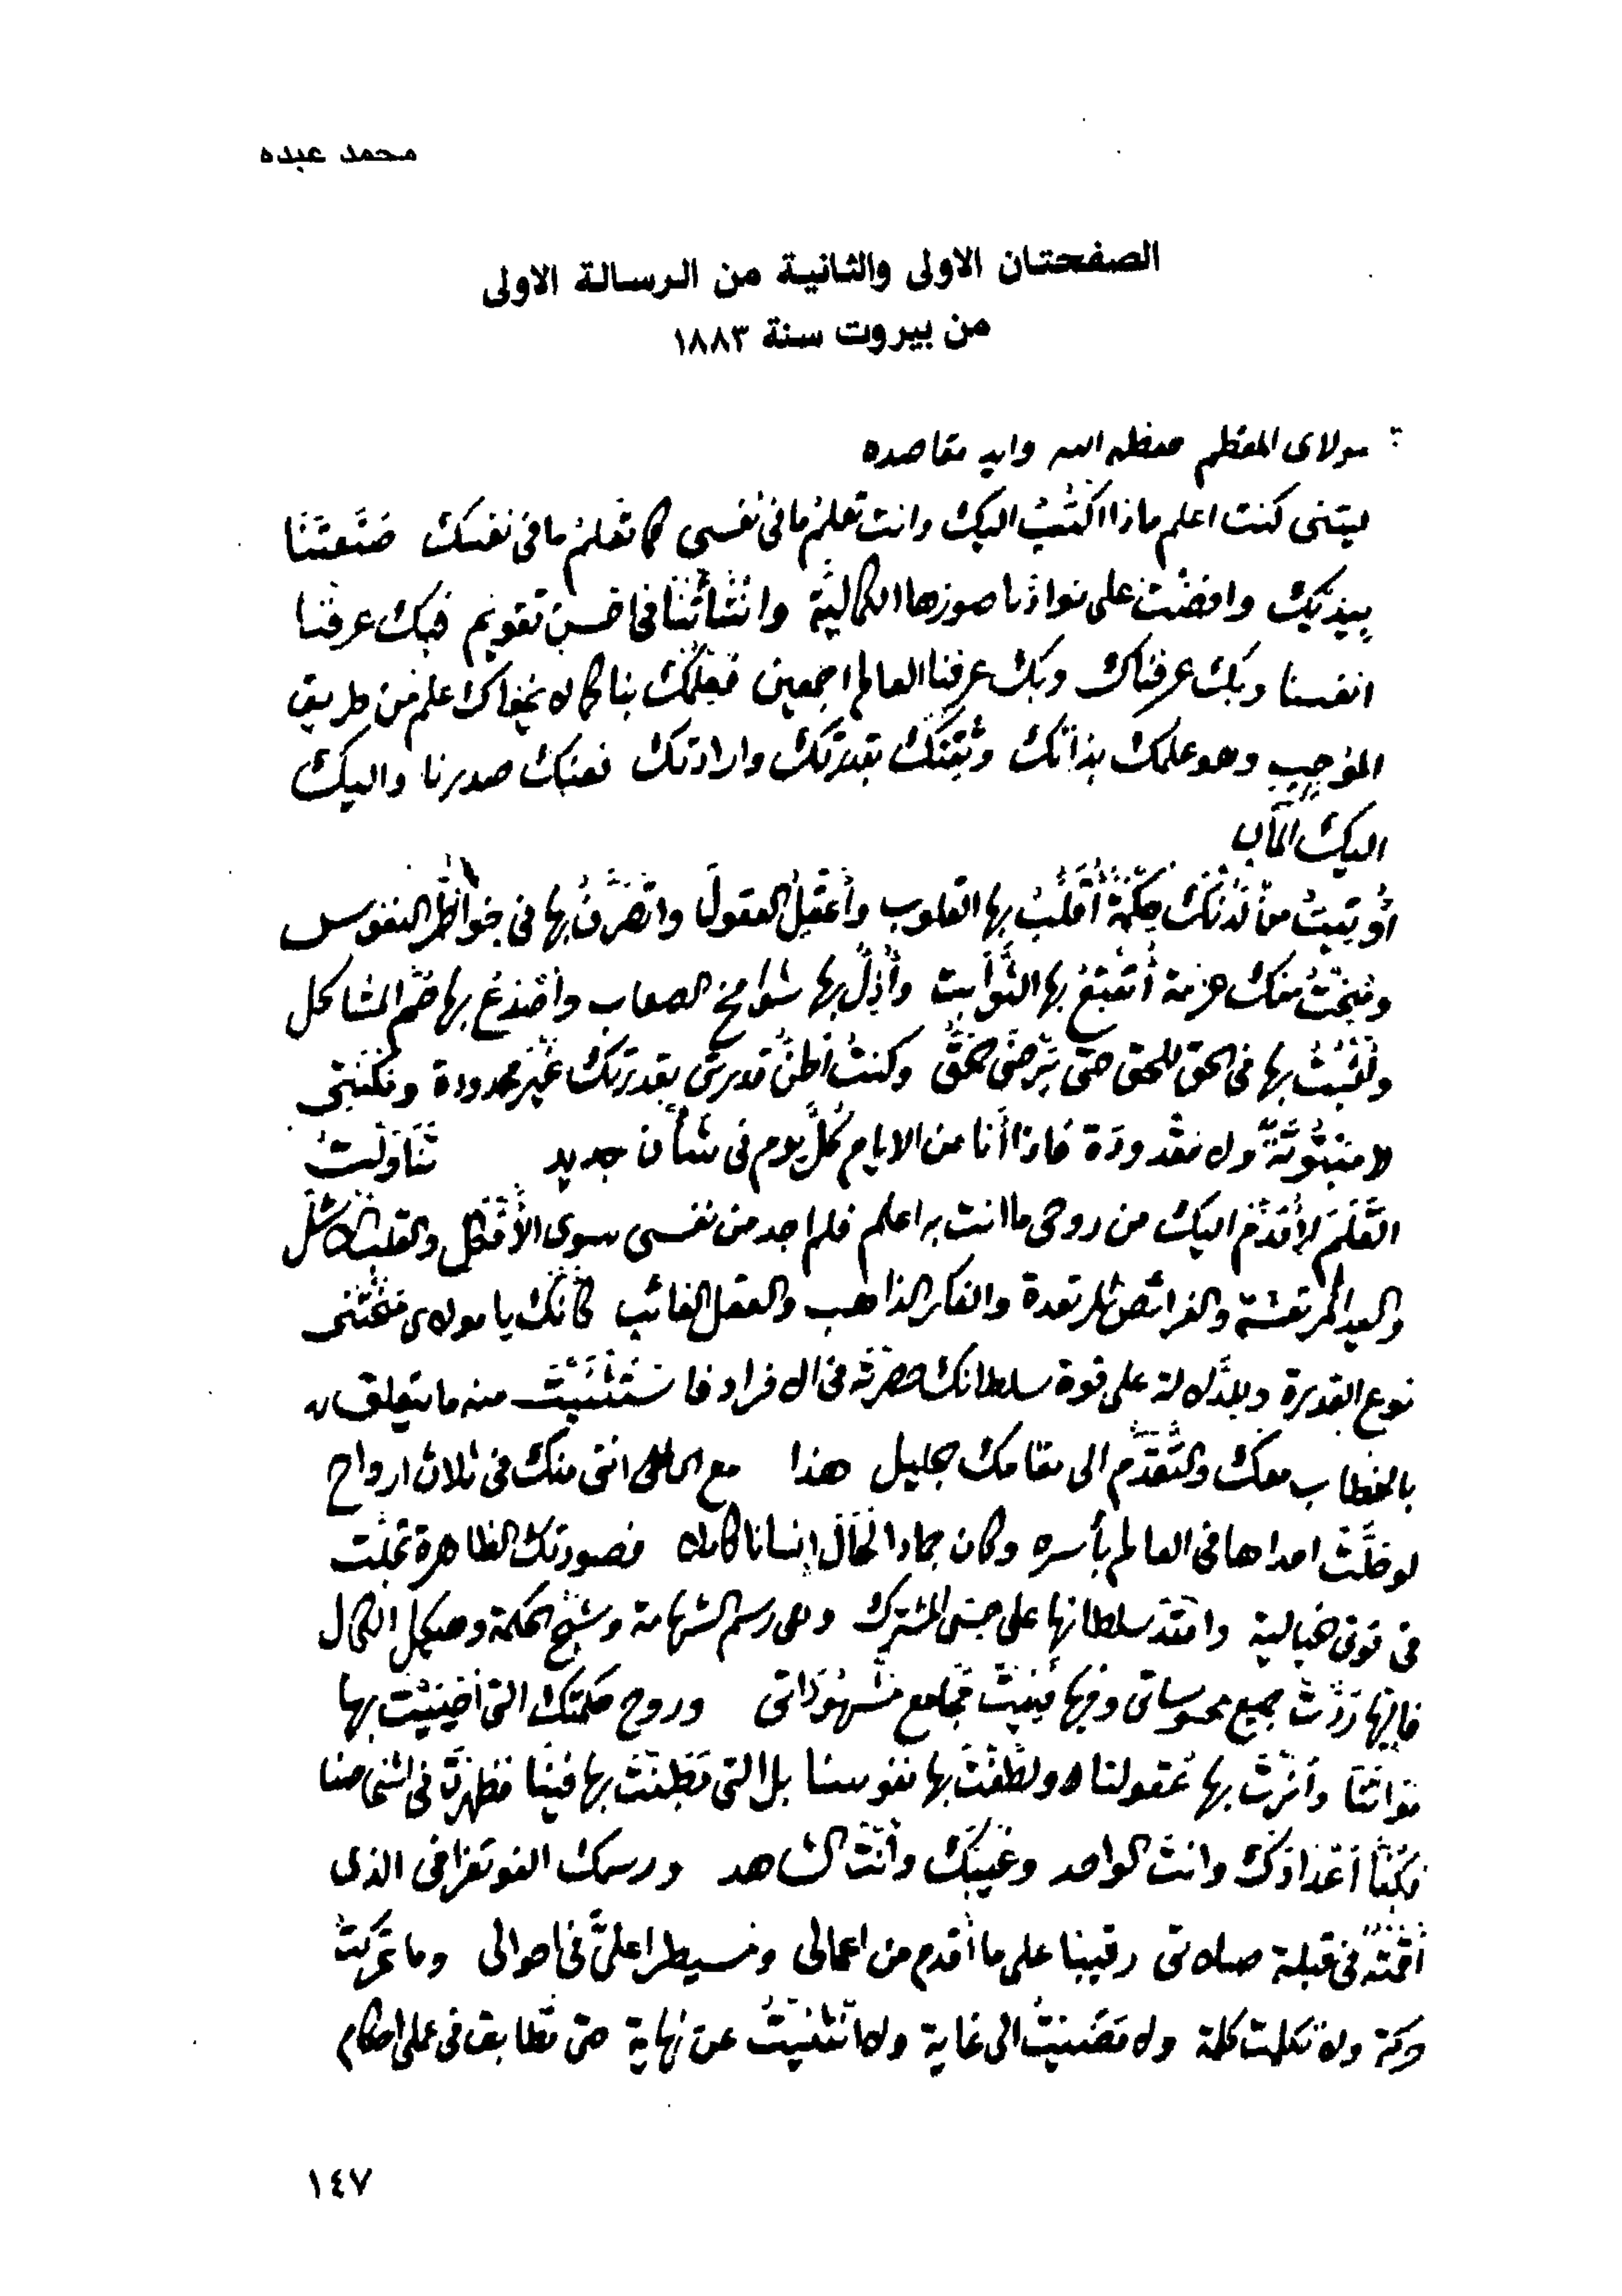 محمد عبده
الصفحتان الاولى والثانية من الرسالة الاولى
من بيروت سنة ١٨٨٣
مولاى المعظم حفظه الله وايد مقاصده
ليتنى كنت اعلم ماذا اكتب اليك وانت تعلم ما فى نفسى كما تعلم ما فى نفسك صنعتنا
بيديك وافضت على موادنا صورها الكمالية وانشأتنا فى احسن تقويم فبك عرفنا
انفسنا وبك عرفناك وبك عرفنا العالم اجمعين فعلمك بنا كما لا يخفاك علم من طريق
الموجب وهو علمك بذاتك وثقتك بقدرتك وارادتك فعنك صدرنا واليك
اليك المآب
أوتيت من لدنك حكمة أقلب بها القلوب وأعقل العقول واتصرف بها فى خواطر النفوس
ومنحت منك عزمة أتعتع بها الثوابت وأذل بها شوامخ الصعاب وأصدع بها صم المشاكل
وأثبت بها فى الحق للحق حتى يرضى الحق وكنت أظن قدرتى بقدرتك غير محدودة ومكنتى
لا مبتوتة ولا مقدودة فاذا أنا من الايام كل يوم فى شأن جديد تناولت
القلم لأقدم اليك من روحى ما انت به اعلم فلم اجد من نفسى سوى الأفكل والقلب الأشل
واليد المرتعشة والفرائص المرتعدة والفكر الذاهب والعقل الغائب كأنك يا مولاى منحتنى
نوع القدرة وللدلالة على قوة سلطانك حصرته فى الافراد فاستثنيت منه ما يتعلق
بالخطاب معك والتقدم الى مقامك الجليل هذا مع اننى منك فى ثلاث ارواح
لو حلت احداها فى العالم بأسره وكان جمادا لحال إنسانا كاملا فصورتك الظاهرة تجلت
فى قوتى الخيالية وامتد سلطانها على حسى المشترك وهى رسم الشهامة وشبح الحكمة وهيكل الكمال
فاليها ردت جميع محسوساتى وفيها فنيت مجامع مشهوداتى وروح حكمتك التى أحييت بها
مواتنا وأنرت بها عقولنا ولطفت بها نفوسنا بل التى بطنت بها فينا فظهرت فى اشخاصنا
فكنا أعدادك وانت الواحد وغيبك وأنت الشاهد ورسمك الفوتغرافى الذى
أقمته فى قبلة صلاتى رقيبا على ما أقدم من اعمالى ومسيطرا على فى احوالى وما تحركت
حركة ولا تكلمت كلمة ولا مضيت الى غاية ولا انثنيت عن نهاية حتى تطابق فى عملى احكام
١٤٧